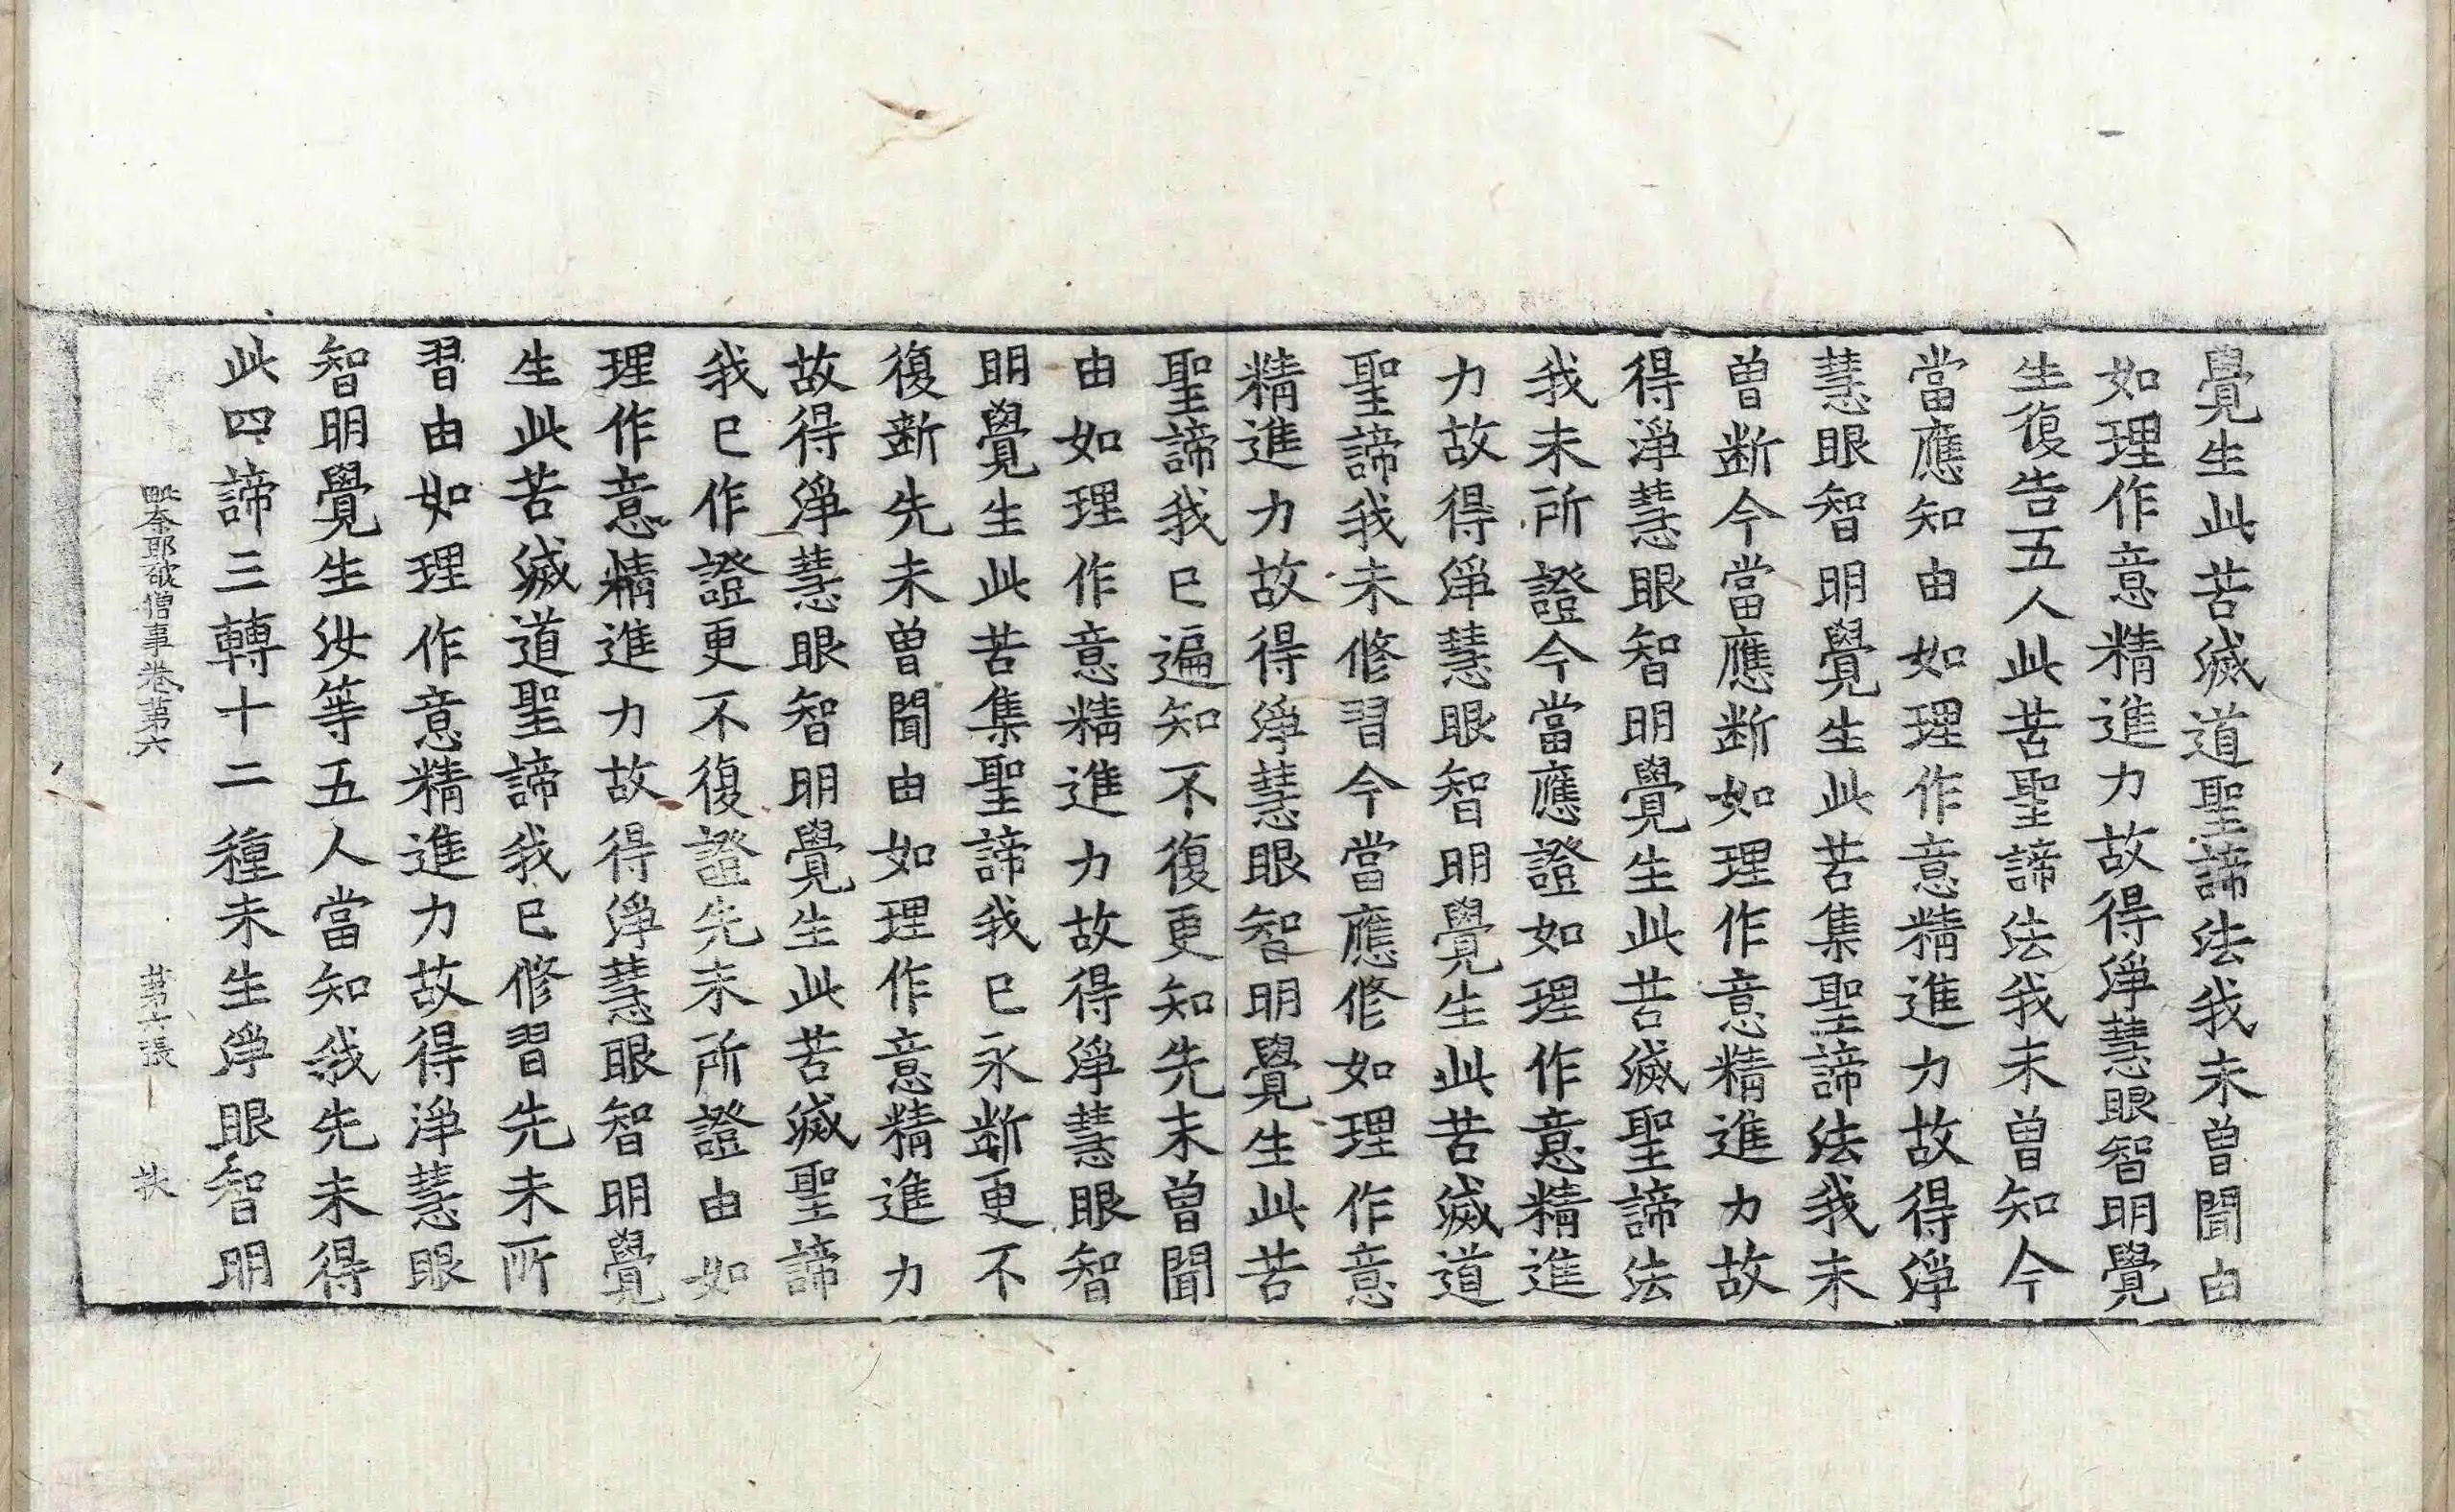 覺生此苦滅道聖諦法我未曾聞由
如理作意精進力故得淨慧眼智明覺
生復告五人此苦聖諦法我未曾知今
當應知由如理作意精進力故得淨
慧眼智明覺生此苦集聖諦法我未
曾断今當應断如理作意精進力故
得淨慧眼智明覺生此苦滅聖諦法
我未所證今當應證如理作意精進
力故得淨慧眼智明覺生此苦滅道
聖諦我未修習今當應修如理作意
精進力故得淨慧眼智明覺生此苦
聖諦我已遍知不復更知先未曾聞
由如理作意精進力故得淨慧眼智
明覺生此苦集聖諦我已永断更不
復断先未曾聞由如理作意精進力
故得淨慧眼智明覺生此苦滅聖諦
我已作證更不復證先未所證由如
理作意精進力故得淨慧眼智明覺
生此苦滅道聖諦我已修習先未所
習由如理作意精進力故得淨慧眼
智明覺生汝等五人當知我先未得
此四諦三轉十二種未生淨眼智明
毗奈耶破僧事卷第六 第六張 扶